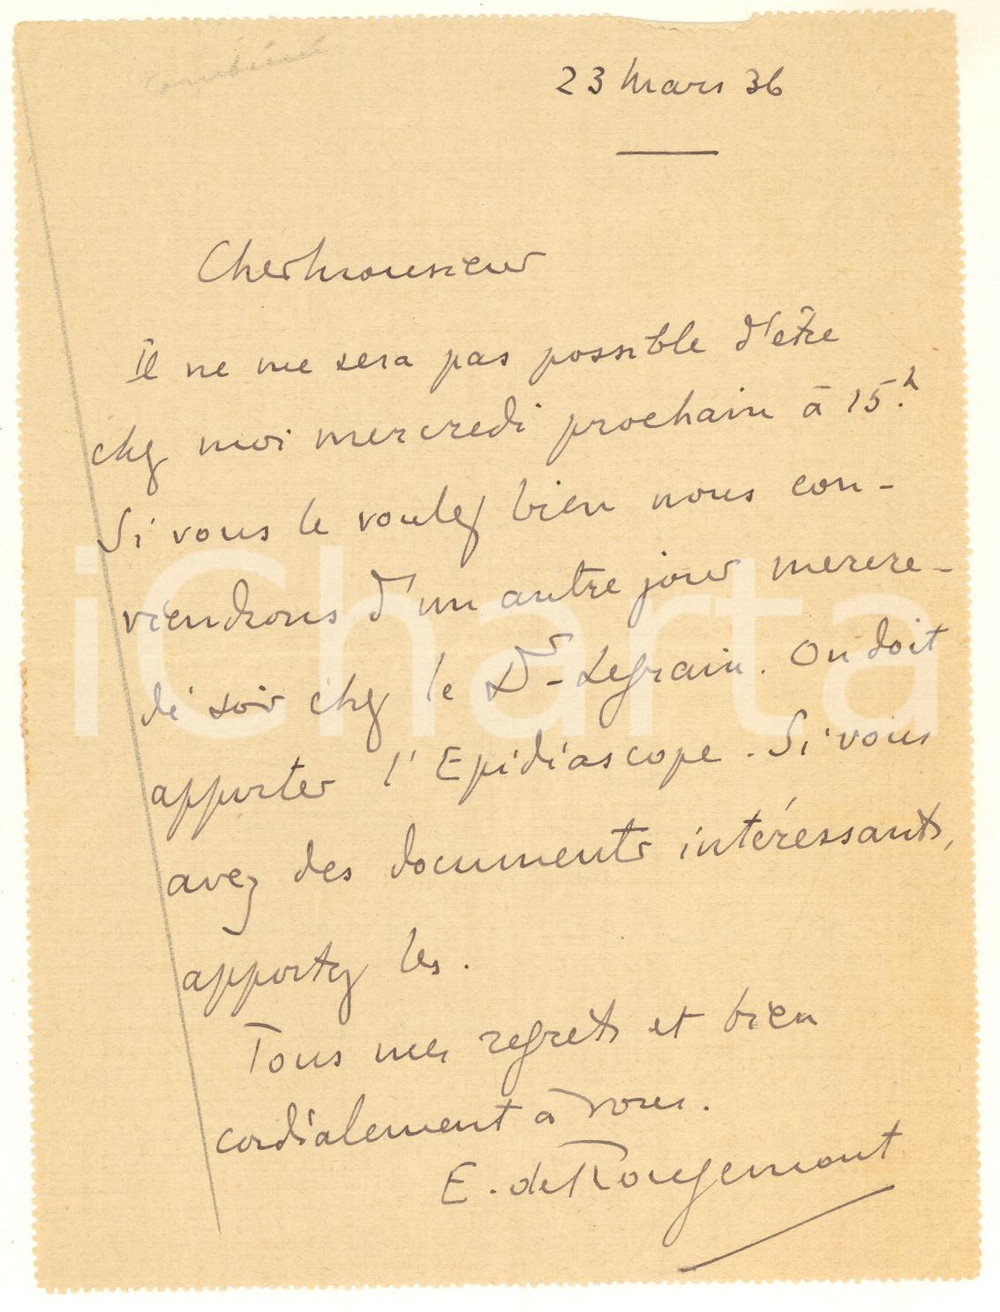 23 Mars 36
Cher Monsieur
Il ne me sera pas possible d'être
chez moi mercredi prochain à 15.h
Si vous le voulez bien nous con-
viendrons d'un autre jour mercre-
di soir chez le Dr Legrain. On doit
apporter l'Epidiascope. Si vous
avez des documents intéressants,
apportez les.
Tous mes regrets et bien
cordialement à vous.
E. de Rougemont
iCharta